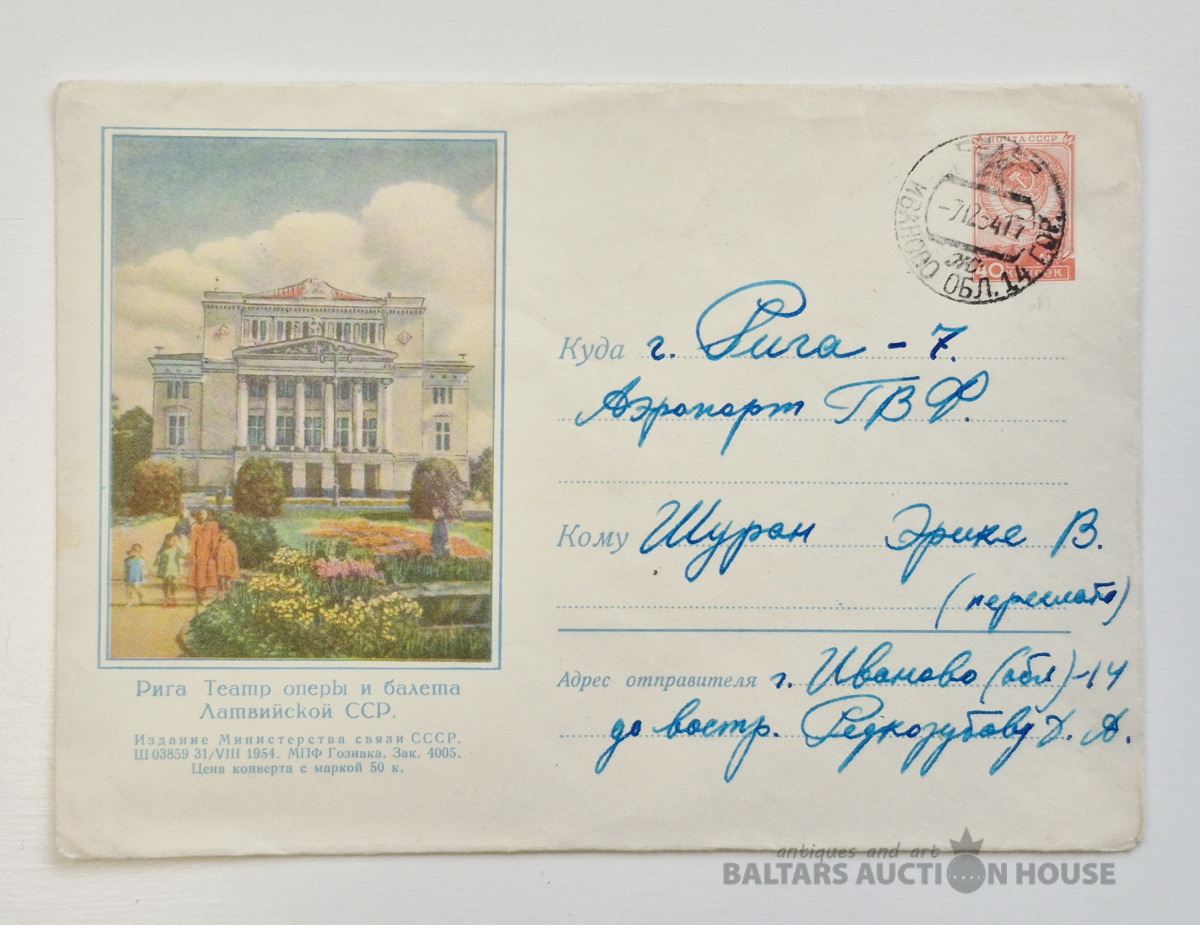 ПОЧТА СССР
ИВАНОВО ОБЛ. 14 ГОР.
-71254
40
Куда г. Рига - 7.
Аэропорт ГВФ.
Кому Шуран Эрике В.
(переслать)
Адрес отправителя г. Иваново (обл)-14
до востр. Редкозубову Д. А.
Рига Театр оперы и балета
Латвийской ССР.
Издание Министерства связи СССР.
Ш 03859 31/VIII 1954. МПФ Гознака. Зак. 4005.
Цена конверта с маркой 50 к.
antiques and art
BALTARS AUCTION HOUSE